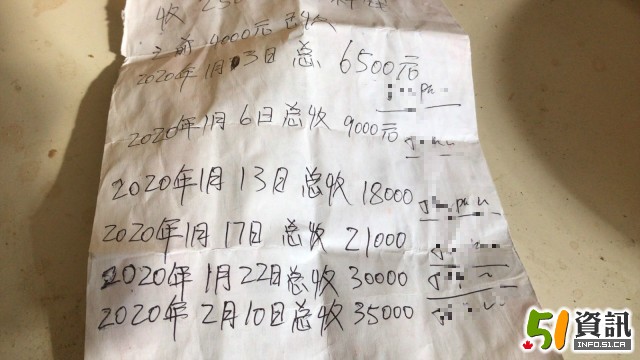 收 250
之前 4000元 已收
2020年1月3日 总 6500元
2020年1月6日总收 9000元
2020年1月13日总收 18000
2020年1月17日 总收 21000
2020年1月22日总收 30000
2020年2月10日总收 35000
51資訊
INFO.51.CA